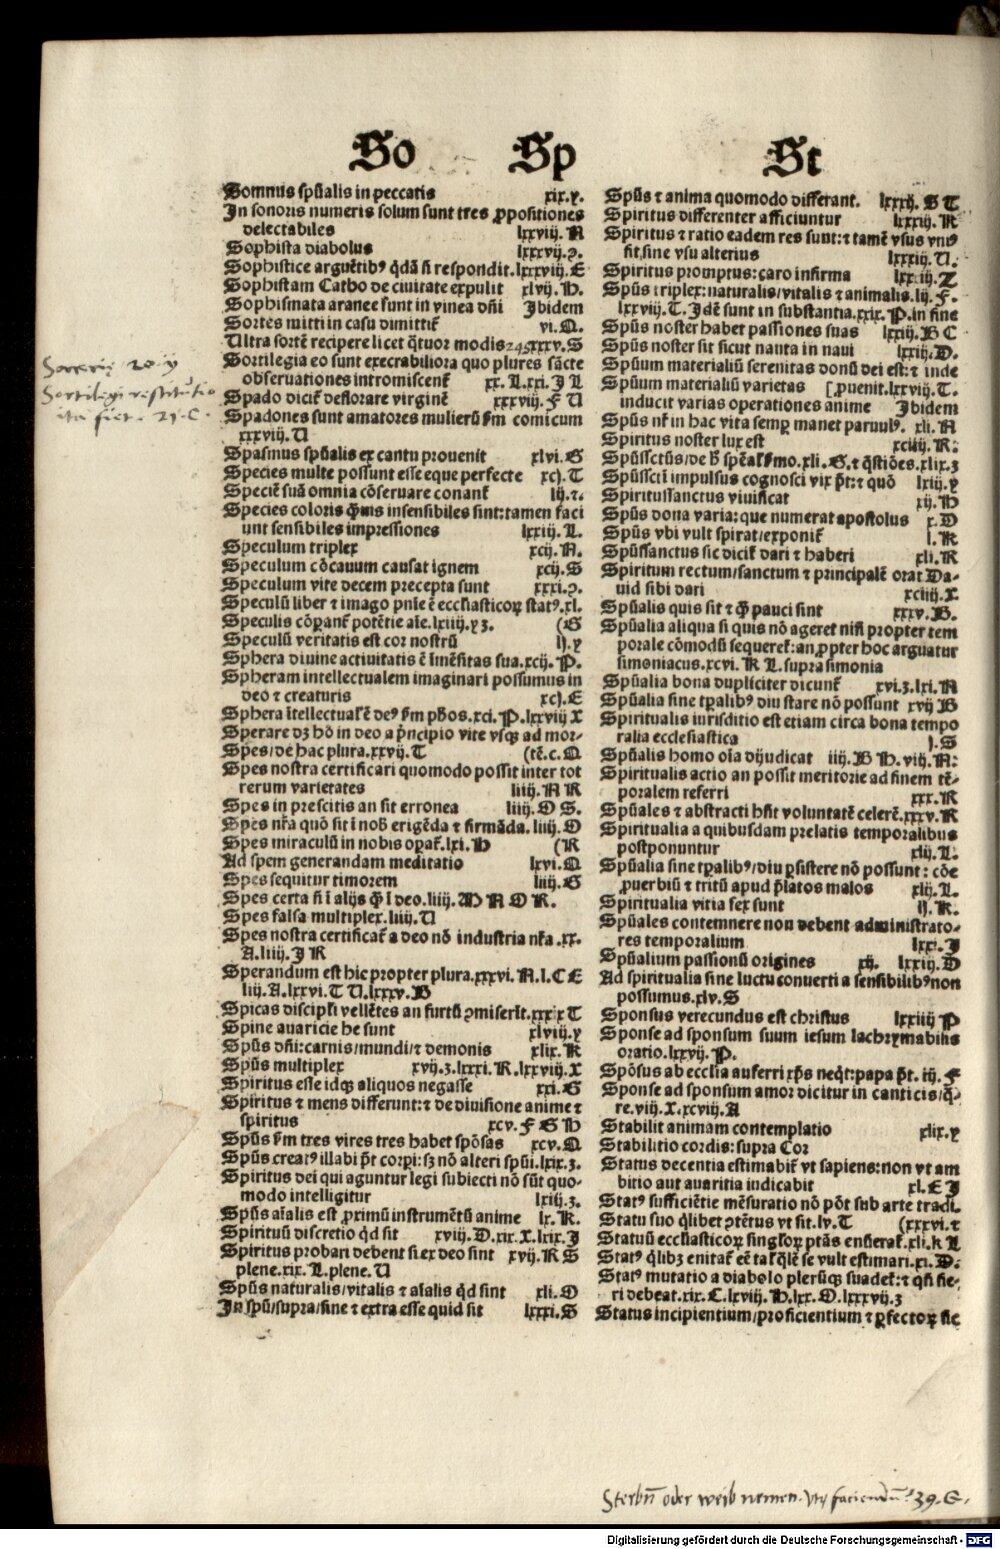 So Sp St
Somnus spūalis in peccatis xix.y.
In sonoris numeris solum sunt tres ꝓpositiones
delectabiles lxxviij. N
Sophista diabolus lxxxvij.
Sophistice arguētibꝰ qͥdā ñ respondit. lxxxviij. E
Sophistam Catho de ciuitate expulit xlvij. H.
Sophismata aranee sunt in vinea dñi Ibidem
Sortes mitti in casu dimittit̃ vi. Q.
Ultra sortē recipere licet qͣtuor modis xxxv. S
Sortilegia eo sunt execrabiliora quo plures sācte
obseruationes intromiscent̃ xx. L. xxi. I L
Spado dicit̃ deflorare virginē xxxviij. F U
Spadones sunt amatores mulierū s̃m comicum
xxxviij. U
Spasmus spūalis ex cantu prouenit xlvi. G
Species multe possunt esse eque perfecte xcj. T
Speciē suā omnia cōseruare conant̃ lij. z.
Species coloris qͣuis insensibiles sint: tamen faci
unt sensibiles impressiones lxxiij. L.
Speculum triplex xcij. N.
Speculum cōcauum causat ignem xcij. S
Speculum vite decem precepta sunt xxxi.
Speculū liber ⁊ imago pn̄ie ē ecclīasticoꝝ statꝰ. xl.
Speculis cōparant̃ potētie aīe. lxiiij. y z. (G
Speculū veritatis est cor nostrū lj. y
Sphera diuine actiuitatis ē īmēsitas sua. xcij. P.
Spheram intellectualem imaginari possumus in
deo ⁊ creaturis xcj. E
Sphera ītellectual̃ ē deꝰ s̃m pħos. xci. P. lxxviij X
Sperare dꝫ hō in deo a pͥncipio vite vsqꝫ ad mor-
Spes/ de hac plura. xxvij. T (tē. c. Q
Spes nostra certificari quomodo possit inter tot
rerum varietates liiij. N R
Spes in prescitis an sit erronea liiij. O S.
Spes nr̃a quō sit ī nob̃ erigēda ⁊ firmāda. liiij. O
Spes miraculū in nobis oꝑat̃. lxi. H (R
Ad spem generandam meditatio lxvi. Q
Spes sequitur timorem liiij. G
Spes certa ñ ī alijs qͣ ī deo. liiij. M N O R.
Spes falsa multiplex. liiij. U
Spes nostra certificat̃ a deo nō industria nr̃a. xx.
A. liiij. I R
Sperandum est hic propter plura. xxxvi. N. l. C E
liij. A. lxxvi. T U. lxxv. B
Spicas discipl̃i vellētes an furtū ꝯmiserīt. xxx x T
Spine auaricie he sunt xlviij. y
Spūs dñi: carnis/ mundi/ ⁊ demonis xlix. K
Spūs multiplex xvij. z. lxxxi. R. lxxviij. X
Spiritus esse idqꝫ aliquos negasse xxi. G
Spiritus ⁊ mens differunt: ⁊ de diuisione anime ⁊
spiritus xcv. F G H
Spūs s̃m tres vires tres habet spōsas xcv. Q
Spūs creatꝰ illabi pōt corpi: sꝫ nō alteri spūi. lxix. z.
Spiritus dei qui aguntur legi subiecti nō sūt quo-
modo intelligitur lxiij. z.
Spūs aīalis est ꝓximū instrumētū anime lx. K.
Spirituū discretio qͥd sit xviij. D. xix. X. lxix. I
Spiritus probari debent si ex deo sint xvij. R S
plene. xix. L. plene. U
Spūs naturalis/ vitalis ⁊ aīalis qͥd sint xli. O
In spū/ supra/ sine ⁊ extra esse quid sit lxxxi. S
Spūs ⁊ anima quomodo differant. lxxxij. S T
Spiritus differenter afficiuntur lxxxiij. R
Spiritus ⁊ ratio eadem res sunt: ⁊ tamē vsus vniꝰ
fit sine vsu alterius lxxxiij. U.
Spiritus promptus: caro infirma Z
Spūs triplex: naturalis/ vitalis ⁊ animalis. lij. F.
lxxviij. T. Idē sunt in substantia. xxix. P. in fine
Spūs noster habet passiones suas lxxij. B C
Spūs noster sit sicut nauta in naui lxxij. D.
Spūum materialiū serenitas donū dei est: ⁊ inde
Spūum materialiū varietas [ꝓuenit. lxxvij. T.
inducit varias operationes anime Ibidem
Spūs nr̃ in hac vita semꝑ manet paruulꝰ. xli. N
Spiritus noster lux est xciiij. R:
Spūssctūs/ de hͦ sp̄eal̃ s̃mo. xli. G. ⁊ qͥstiōes. xlix. z
Spūsscti impulsus cognosci vix pōt: ⁊ quō lxiij. y
Spiritussanctus viuificat xij. H
Spūs dona varia: que numerat apostolus x. D
Spūs vbi vult spirat/ exponit̃ l. R
Spūssanctus sic dicit̃ dari ⁊ haberi xli. R
Spiritum rectum/ sanctum ⁊ principalē orat Da-
uid sibi dari xciiij. X.
Spūalis quis sit ⁊ qͣ pauci sint xxxv. B.
Spūalia aliqua si quis nō ageret nisi propter tem
porale cōmodū sequeret̃: an ꝓpter hoc arguatur
simoniacus. xcvi. K L. supra simonia
Spūalia bona dupliciter dicunt̃ xvi. z. lxi. N
Spūalia sine tꝑalibꝰ diu stare nō possunt xvij B
Spiritualis iurisdictio est etiam circa bona tempo
ralia ecclesiastica j. S
Spūalis homo oīa dijudicat iiij. B H. viij. N:
Spiritualis actio an possit meritorie ad finem tē-
poralem referri xxx. R
Spūales ⁊ abstracti hñt voluntatē celerē. xxxv. R
Spiritualia a quibusdam prelatis temporalibus
postponuntur xlij. L.
Spūalia sine tꝑalibꝰ/ diu ꝑsistere nō possunt: cōe
ꝓuerbiū ⁊ tritū apud p̄latos malos xlij. L.
Spiritualia vitia sex sunt lj. K.
Spūales contemnere non debent administrato-
res temporalium lxxi. I
Spūalium passionū origines xij. lxxiij. D
Ad spiritualia sine luctu conuerti a sensibilibꝰ non
possumus. xlv. S
Sponsus verecundus est christus lxxiiij P
Sponse ad sponsum suum iesum lachrymabilis
oratio. lxxvij. P.
Spōsus ab ecclīa auferri xp̄s neqͥt: papa pōt. iij. F
Sponse ad sponsum amor dicitur in canticis/ q̄-
re. viij. X. xcviij. A
Stabilit animam contemplatio xlix. y
Stabilitio cordis: supra Cor
Status decentia estimabit̃ vt sapiens: non vt am
bitio aut auaritia iudicabit xl. E I
Statꝰ sufficiētie mēsuratio nō pōt sub arte tradi.
Statu suo qͥlibet ꝯtētus vt sit. lv. T (xxxvi. ⁊
Statuū ecclīasticoꝝ singl̃oꝝ ptās enūerat̃. xli. k L
Statꝰ qͥlibꝫ enitat̃ eē tal̃ qͣlē se vult estimari. xi. D.
Statꝰ mutatio a diabolo plerūqꝫ suadet̃: ⁊ qñ fie-
ri debeat. xix. C. lxviij. H. lxx. O. lxxxvij. z
Status incipientium/ proficientium ⁊ ꝑfectoꝝ sic
Sortilegi restitutio
ita fiet. 21. C.
Sterbn̄ oder weib nemen. faciendū 39. G.
Digitalisierung gefördert durch die Deutsche Forschungsgemeinschaft - DFG